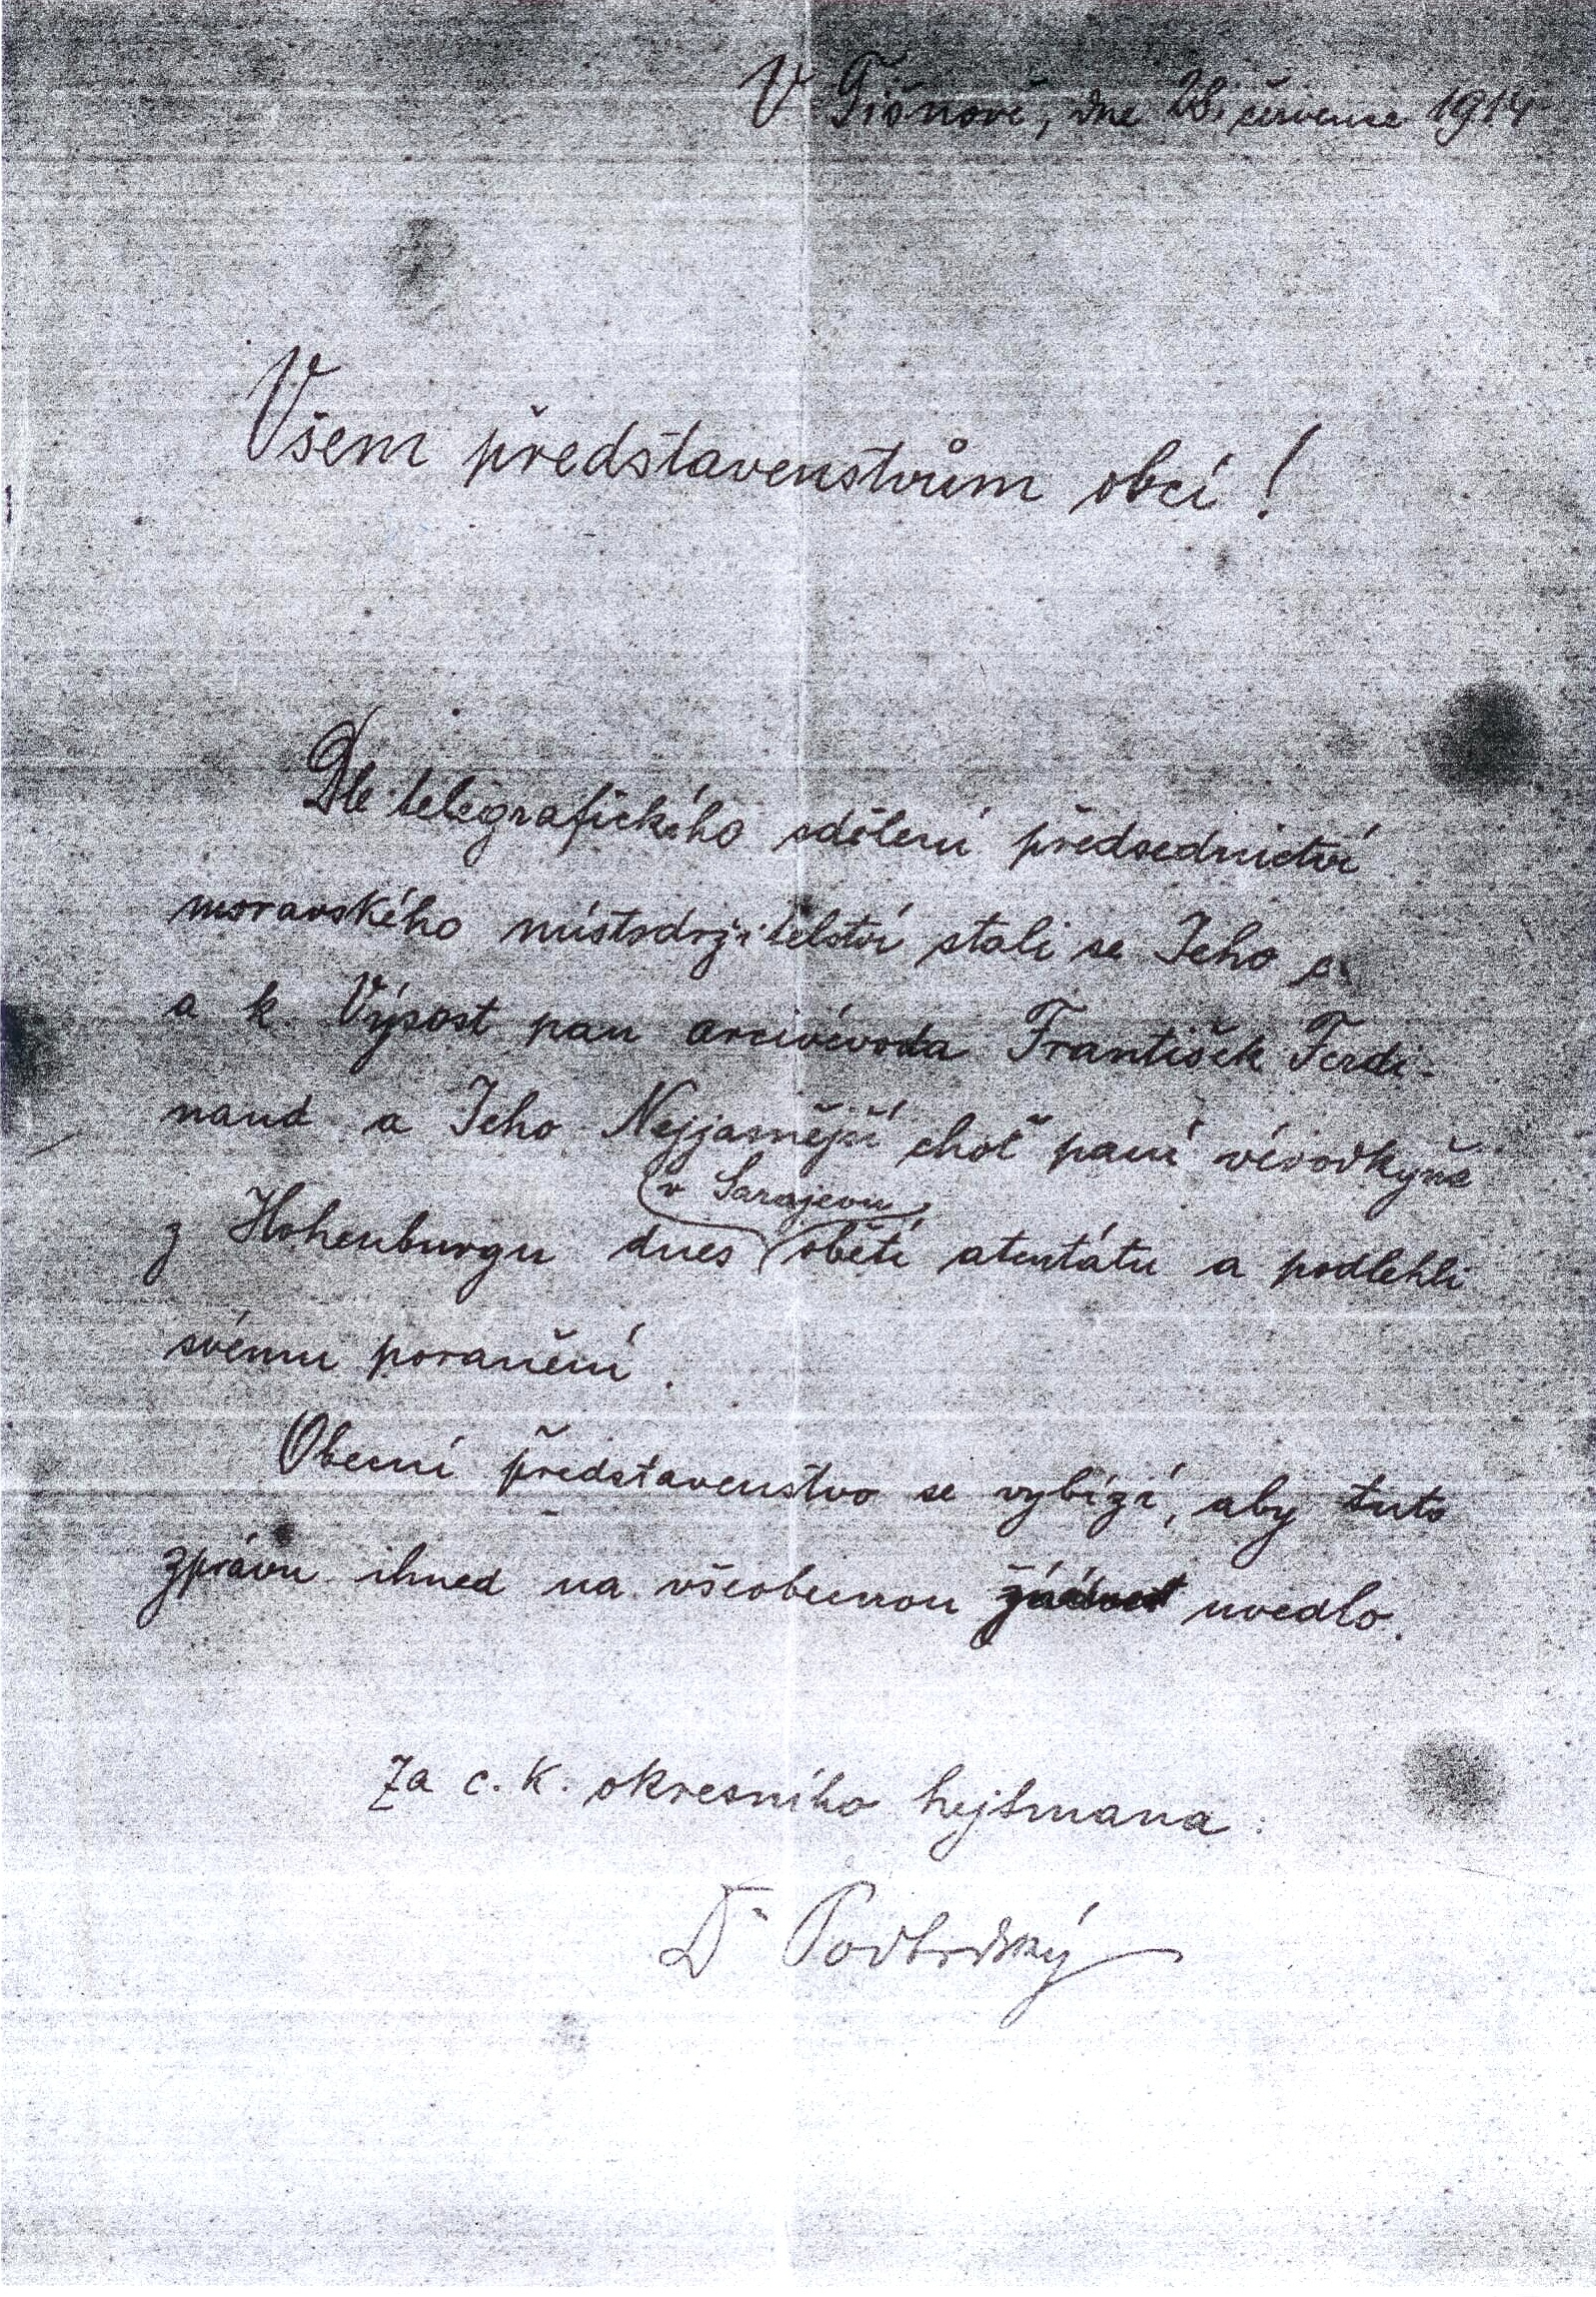 V Tišnově, dne 28. července 1914
Všem představenstvům obcí!
Dle telegrafického sdělení předsednictví
moravského místodržitelství stali se Jeho c.
a k. Výsost pan arcivévoda František Ferdi-
nand a Jeho Nejjasnější choť paní vévodkyně
v Sarajevu
z Hohenburgu dnes obětí atentátu a podlehli
svému poranění.
Obecní představenstvo se vybízí, aby tuto
zprávu ihned na všeobecnou uvedlo.
Za c. k. okresního hejtmana:
Dr Podbrdský